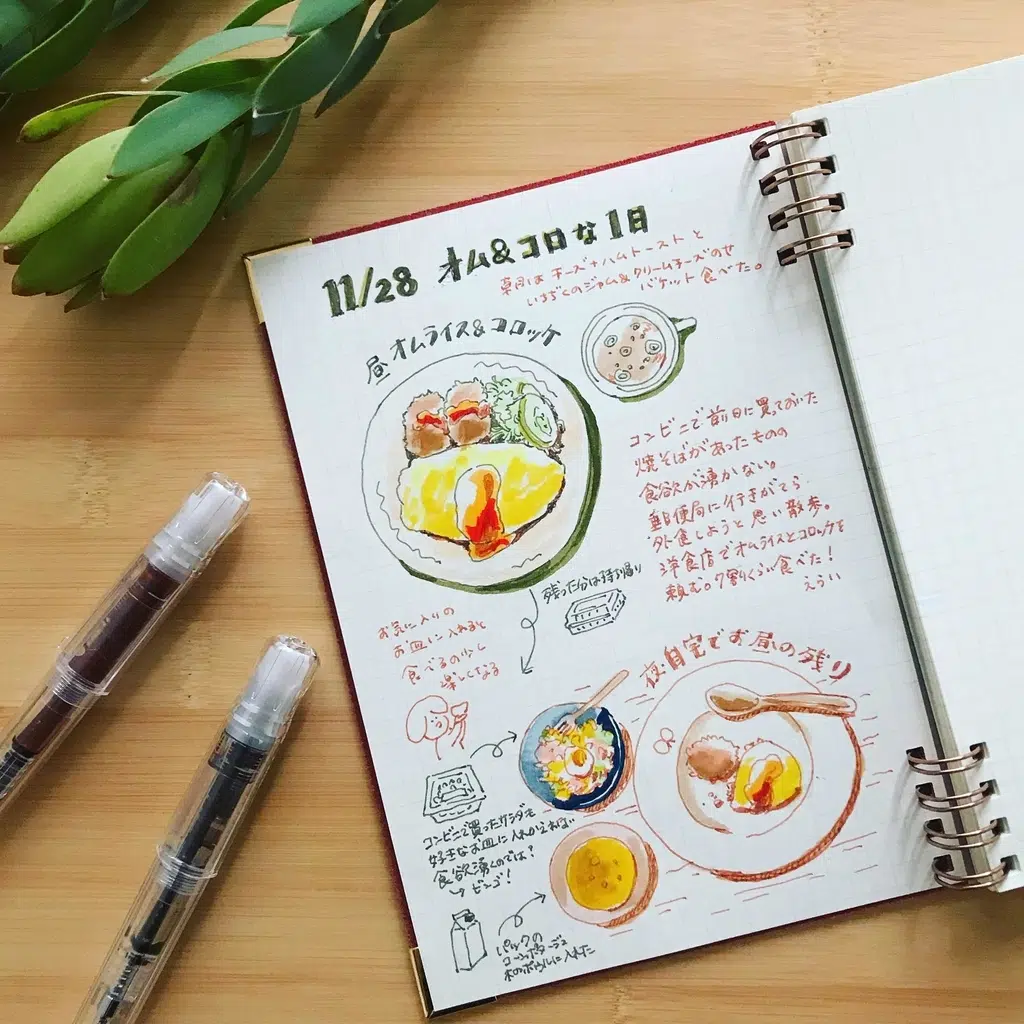 11/28 オム&コロな1日
朝はチーズ+ハムトーストと
いちぢくのジャム&クリームチーズのせ
バケット食べた。
昼 オムライス&コロッケ
コンビニで前日に買っておいた
焼そばがあったものの
食欲が湧かない。
郵便局に行きがてら
外食しようと思い散歩。
洋食店でオムライスとコロッケを
頼む。7割くらい食べた!
えらい
残った分は持ち帰り
お気に入りの
お皿に入れると
食べるの少し
楽しくなる
夜 自宅でお昼の残り
コンビニで買ったサラダも
好きなお皿に入れかえれば
食欲湧くのでは?
→ビンゴ!
パックの
コーンポタージュ
木のボウルに入れた